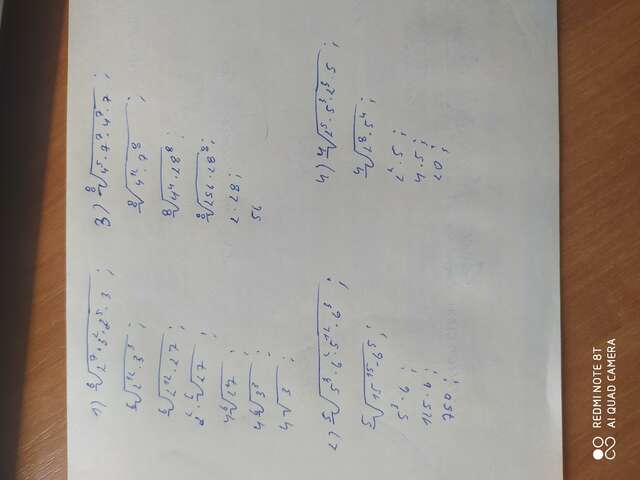 1) ⁶√2⁷·3²·2⁵·3 ;
⁶√2¹²·3³ ;
⁶√2¹²·27 ;
2²·⁶√27 ;
4⁶√27 ;
4⁶√3³ ;
4√3 ;
2) ⁵√5³·6²·5¹²·6³ ;
⁵√15¹⁵·6⁵ ;
5³·6 ;
125·6 ;
750 ;
3) ⁸√4⁵·7⁷·4⁷·7 ;
⁸√4¹²·7⁸ ;
⁸√4⁴·28⁸ ;
⁸√256·28⁸ ;
2·28 ;
56
4) ⁴√2⁵·5³·2³·5 ;
⁴√2⁸·5⁴ ;
2²·5 ;
4·5 ;
20 ;
REDMI NOTE 8T
AI QUAD CAMERA